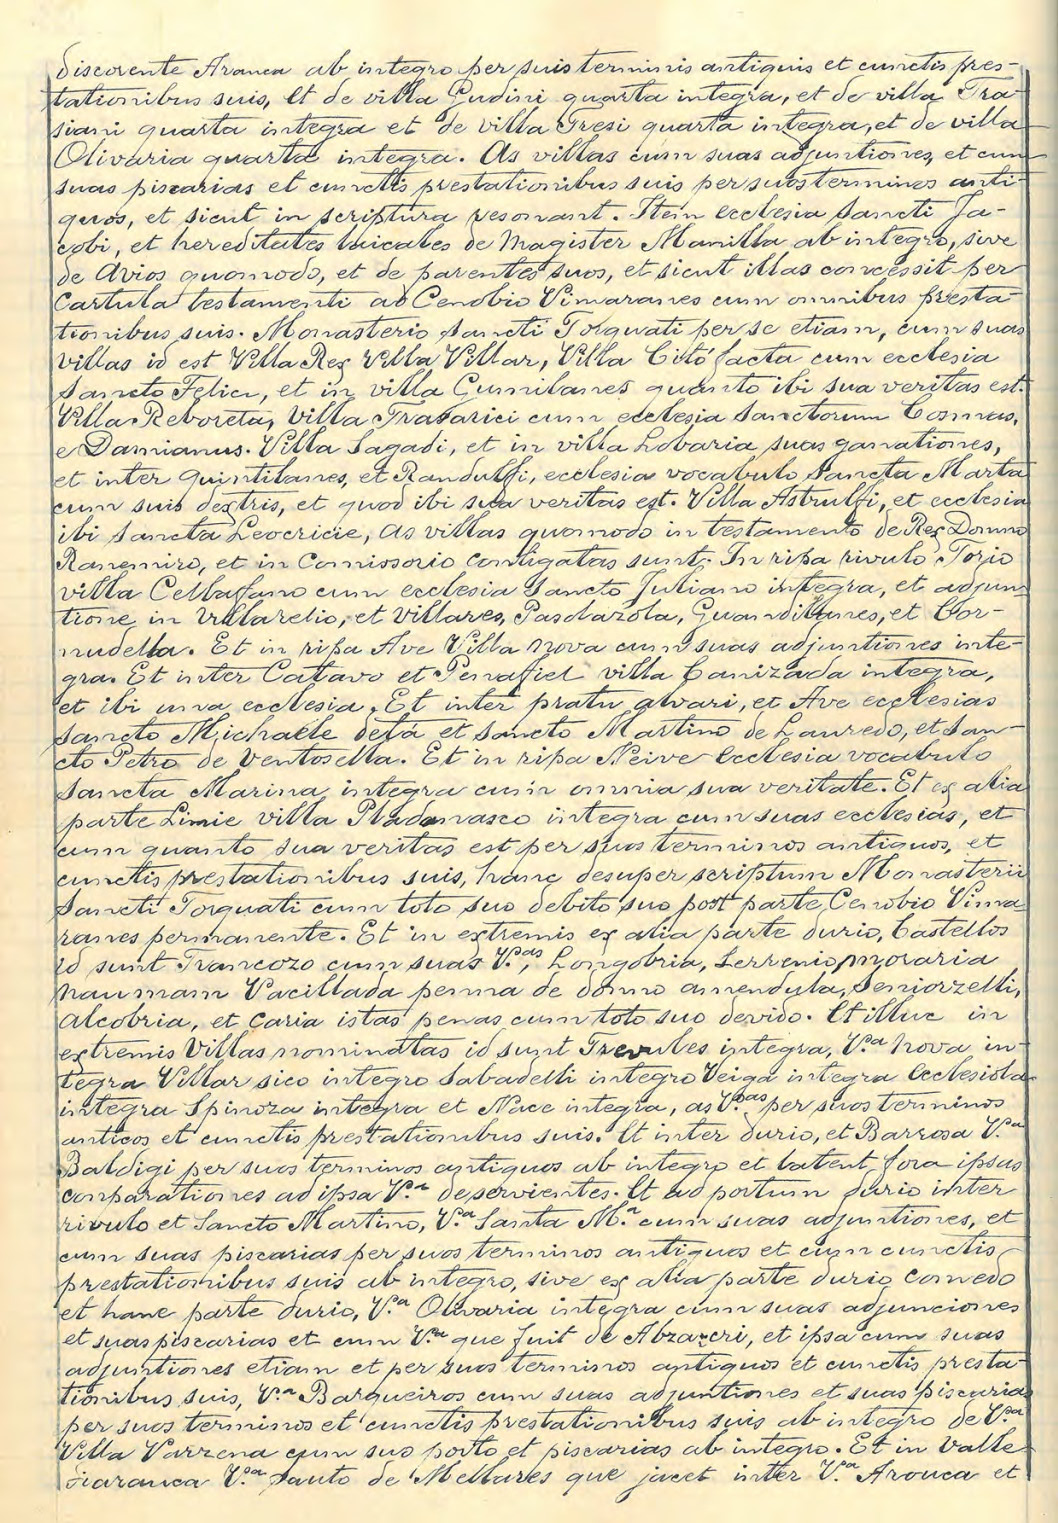 discorente Aranca ab integro per suis terminis antiquis et cunctis pres-
tationibus suis, Et de villa Gudini quarta integra, et de villa Tra-
siani quarta integra et de villa Tresi quarta integra, et de villa
Olivaria quarta integra. As villas cum suas adjuntiones, et cum
suas piscarias et cunctis prestationibus suis per suos terminos anti-
quos, et sicut in scriptura resonant. Item ecclesia Sancti Ja-
cobi, et hereditates laicales de Magister Manilla ab integro, sive
de Avios quomodo, et de parentes suos, et sicut illas concessit per
Cartula testamenti ad Cenobio Vimaranes cum omnibus presta-
tionibus suis. Monasterio Sancti Torquati per se etiam, cum suas
villas id est Villa Rex Villa Villar, Villa Citó facta cum ecclesia
Sancto Felici, et in villa Cumilanes quanto ibi sua veritas est.
Villa Reboreta, Villa Trasarici cum ecclesia Sanctorum Cosmas,
e Damianus. Villa Sagadi, et in villa Lobaria suas ganationes,
et inter Quintilanes, et Randulfi, ecclesia vocabulo Sancta Marta
cum suis dextris, et quod ibi sua veritas est. Villa Astrulfi, et ecclesia
ibi Sancta Leocricie, As villas quomodo in testamento de Rex Domno
Ranemiro, et in Comissorio contigatas sunt. In ripa rivulo Torio
villa Cellafano cum ecclesia Sancto Juliano integra, et adjun-
tione in Villarelio, et Villares, Pasdazola, Guandilanes, et Cor-
nudella. Et in ripa Ave Villa Nova cum suas adjuntiones inte-
gra. Et inter Catavo et Penafiel villa Canizada integra,
et ibi una ecclesia. Et inter pratu alvari, et Ave ecclesias
Sancto Michaele detá et Sancto Martino de Lauredo, et San-
cto Petro de Ventosella. Et in ripa Neive Ecclesia vocabulo
Sancta Marina integra cum omnia sua veritate. Et ex alia
parte Limie villa Pladanvasco integra cum suas ecclesias, et
cum quanto sua veritas est per suos terminos antiquos, et
cunctis prestationibus suis, hanc desuper scriptum Monasterii
Sancti Torquati cum toto suo debito suo post parte Cenobio Vima-
ranes permanente. Et in extremis ex alia parte durio, Castellos
id sunt Trancozo cum suas V.as, Longobria, Terrenio, Moraria
Naumam Vacillada penna de domno amendula, Seniorzelli,
Alcobria, et Caria istas penas cum toto suo devido. Et illuc in
extremis Villas nominatas id sunt Trevules integra, V.a Nova in-
tegra Villar sico integro Sabadelli integro Veiga integra Ecclesiola
integra Spinoza integra et Nace integra, as V.as per suos terminos
anticos et cunctis prestationibus suis. Et inter durio, et Barrosa V.a
Baldigi per suos terminos antiquos ab integro et batent fora ipsas
conparationes ad ipsa V.a deservientes. Et ad portum durio inter
rivulo et Sancto Martino, V.a Santa M.a cum suas adjuntiones, et
cum suas piscarias per suos terminos antiquos et cum cunctis
prestationibus suis ab integro, sive ex alia parte durio comedo
et hanc parte durio, V.a Olivaria integra cum suas adjunciones
et suas piscarias et cum V.a que fuit de Abzecri, et ipsa cum suas
adjuntiones etiam et per suos terminos antiquos et cunctis presta-
tionibus suis, V.a Barqueiros cum suas adjuntiones et suas piscarias
per suos terminos et cunctis prestationibus suis ab integro de V.a
Villa Varzena cum suo porto et piscarias ab integro. Et in Valle
daranca V.a Sauto de Mellares que jacet inter V.a Arouca et